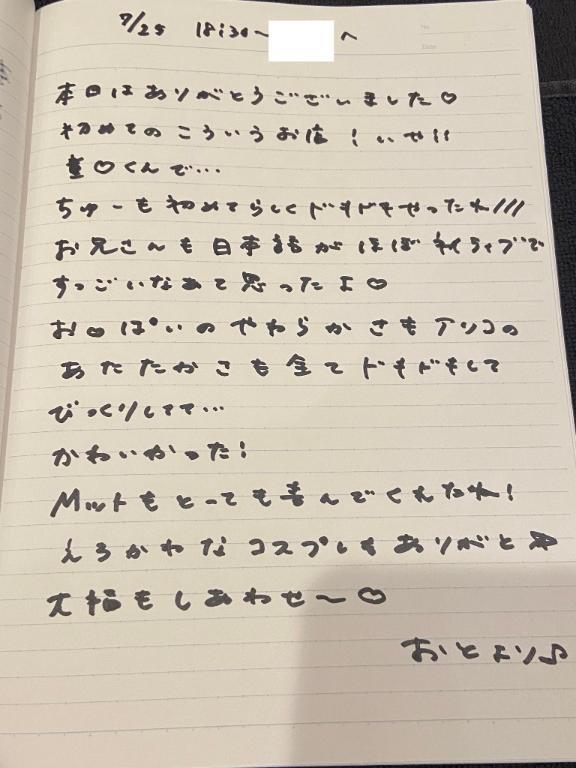 7/25 18:30〜 へ
No.
Date
本日はありがとうございました♡
初めてのこういうお店！いや!!
童♡くんで…
ちゅーも初めてらしくドキドキやったね///
お兄さんも日本語がほぼネイティブで
すっごいなあて思ったよ♡
お♡ぱいのやわらかさもアソコの
あたたかさも全てドキドキして
びっくりしてて…
かわいかった！
Mットもとっても喜んでくれたね！
えろかわなコスプレもありがと
大福もしあわせ〜♡
おとより♪